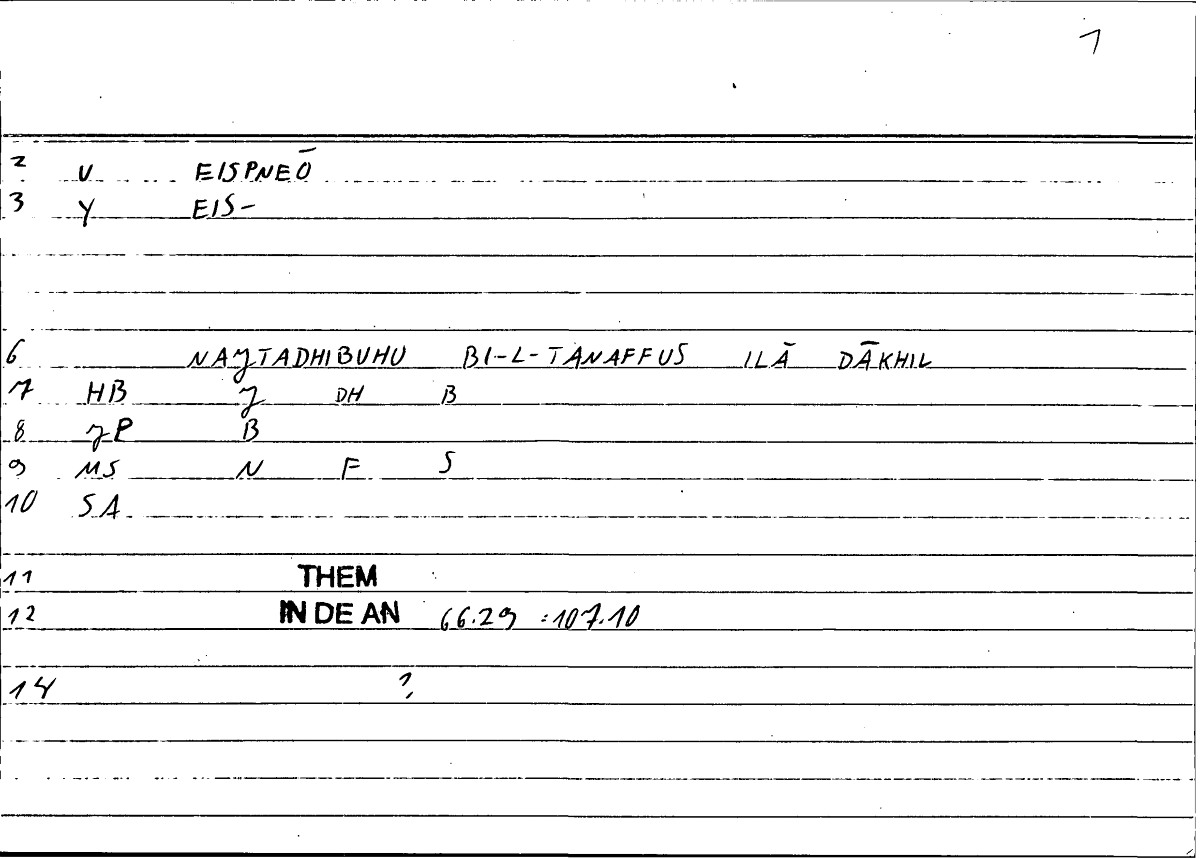 1
2 V EISPNEŌ
3 Y EIS-
6 NAJTADHIBUHU BI-L-TANAFFUS ILĀ DĀKHIL
7 HB J DH B
8 JP B
9 MS N F S
10 SA
11 THEM
12 IN DE AN 66.29 :107.10
14 ?